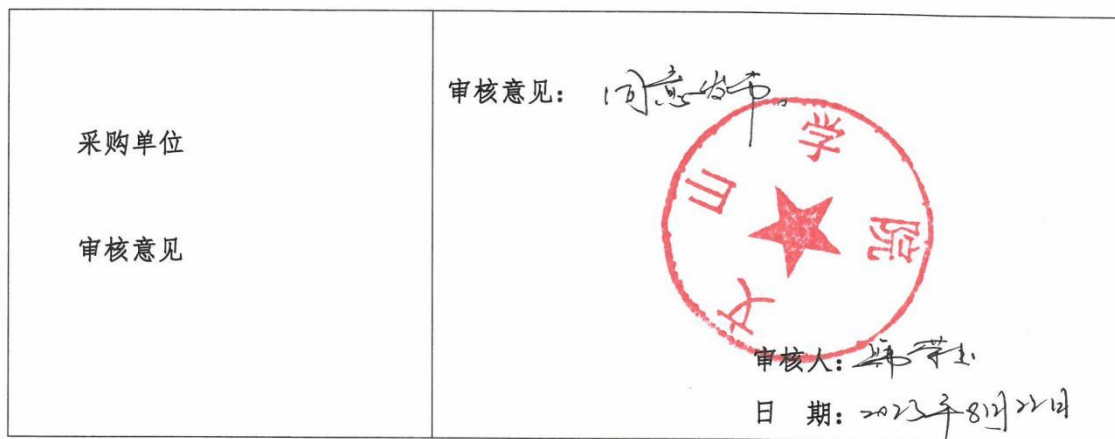 采购单位
审核意见
审核意见：同意发布。
文山学院
审核人：
日 期：2023年8月22日